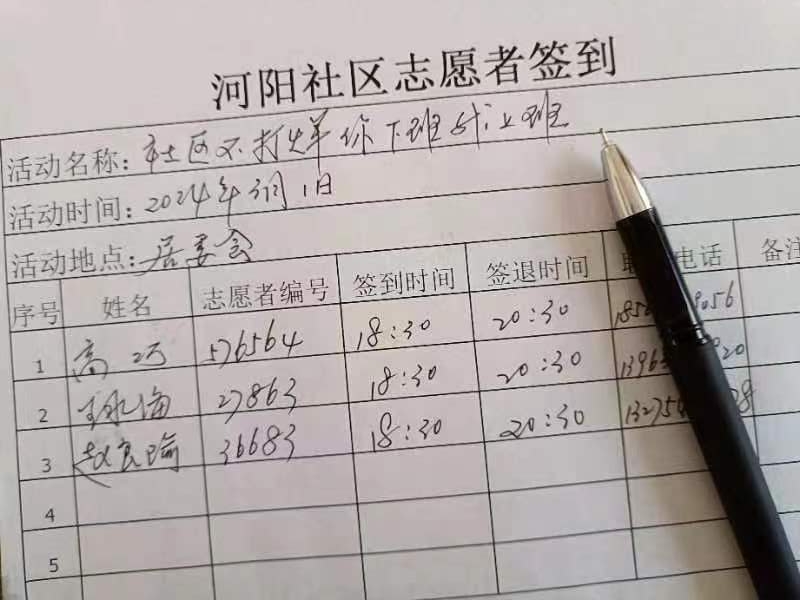 河阳社区志愿者签到
活动名称：社区不打烊 你下班我上班
活动时间：2024年3月1日
活动地点：居委会
序号 姓名 志愿者编号 签到时间 签退时间 电话 备注
1 高巧 576564 18:30 20:30 9056
2 王永海 27863 18:30 20:30
3 赵良瑜 36683 18:30 20:30
4
5